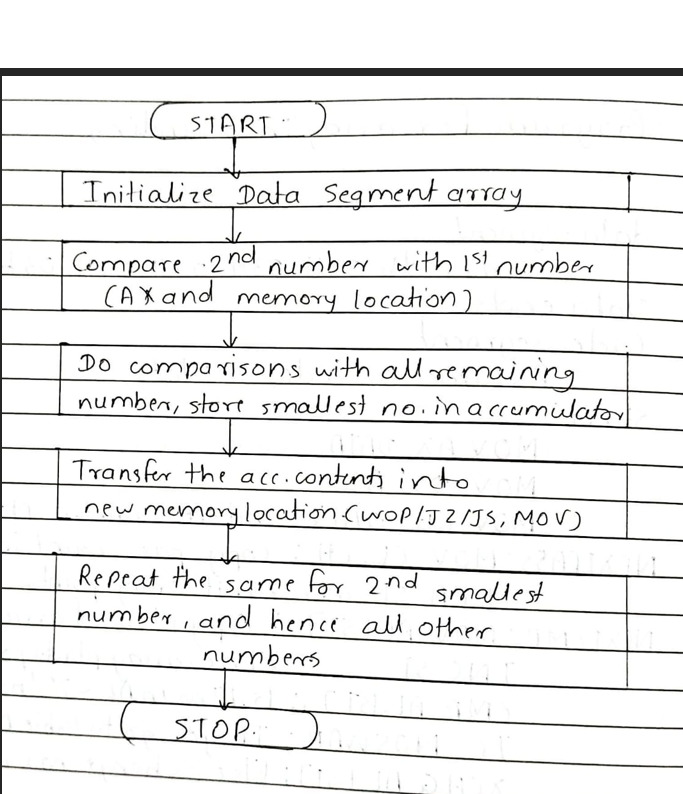 START
Initialize Data Segment array
Compare 2nd number with 1st number
(AX and memory location)
Do comparisons with all remaining
number, store smallest no. in accumulator
Transfer the acc. contents into
new memory location (WOP/JZ/JS, MOV)
Repeat the same for 2nd smallest
number, and hence all other
numbers
STOP.